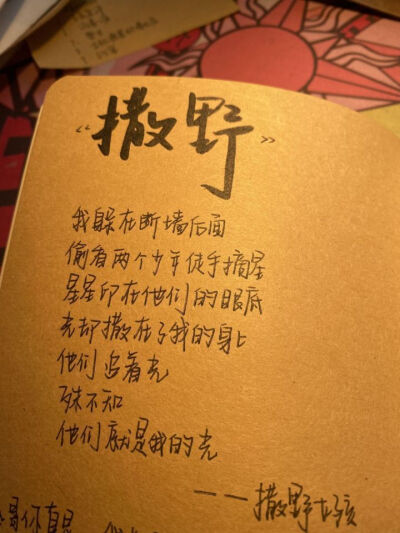 “撒野”
我躲在断墙后面
偷看两个少年徒手摘星
星星印在他们的眼底
光却撒在了我的身上
他们追着光
殊不知
他们就是我的光
——撒野女孩
哥你真是